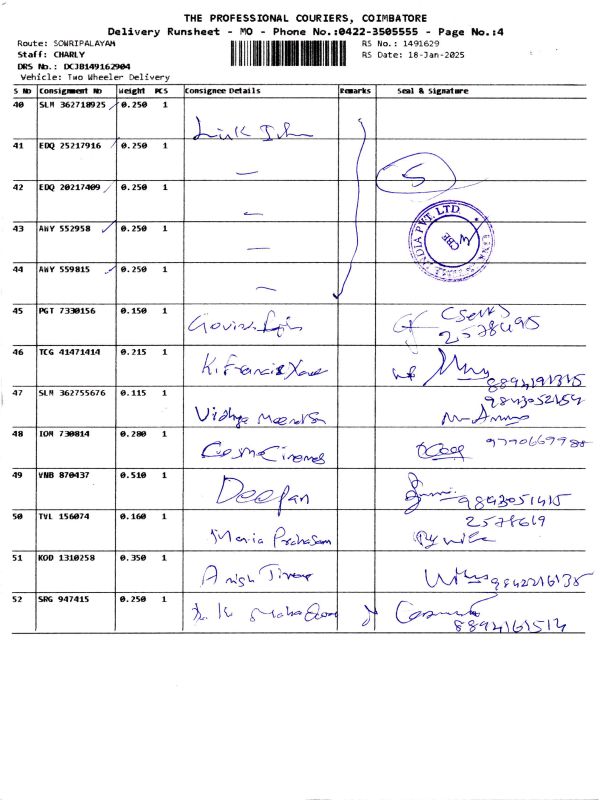 THE PROFESSIONAL COURIERS, COIMBATORE
Delivery Runsheet - MO - Phone No.:0422-3505555 - Page No.:4
Route: SOWRIPALAYAM RS No.: 1491629
Staff: CHARLY RS Date: 18-Jan-2025
DRS No.: DCJB149162904
Vehicle: Two Wheeler Delivery
S No Consignment No Weight PCS Consignee Details Remarks Seal & Signature
40 SLM 362718925 0.250 1
41 EDQ 25217916 0.250 1
5
42 EDQ 20217409 0.250 1
43 AWY 552958 0.250 1
INDIA PVT. LTD. CBE
44 AWY 559815 0.250 1
45 PGT 7330156 0.150 1
2578495
46 TCG 41471414 0.215 1
K. Francis Xavi
47 SLM 362755676 0.115 1
9843052154
Vidhya
48 IOM 730814 0.280 1
Cosmo Cinemas
49 VNB 870437 0.510 1
Deepan
50 TVL 156074 0.160 1
2578619
Maria Prakasam
51 KOD 1310258 0.350 1
9842216135
52 SRG 947415 0.250 1